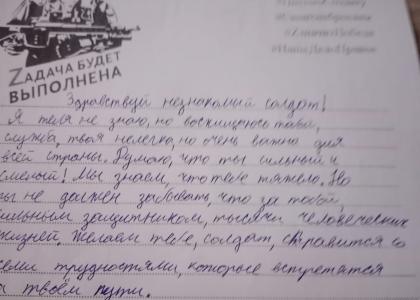 ZАДАЧА БУДЕТ
ВЫПОЛНЕНА
Здравствуй незнакомый солдат!
Я тебя не знаю, но восхищаюсь тобой,
служба, твоя нелегка, но очень важна для
всей страны. Думаю, что ты сильный и
смелый! Мы знаем, что тебе тяжело. Но
ты не должен забывать, что за тобой,
защитником, тысячи человеческих
жизней. Желаем тебе, солдат, справится со
всеми трудностями, которые встретятся
твоём пути.